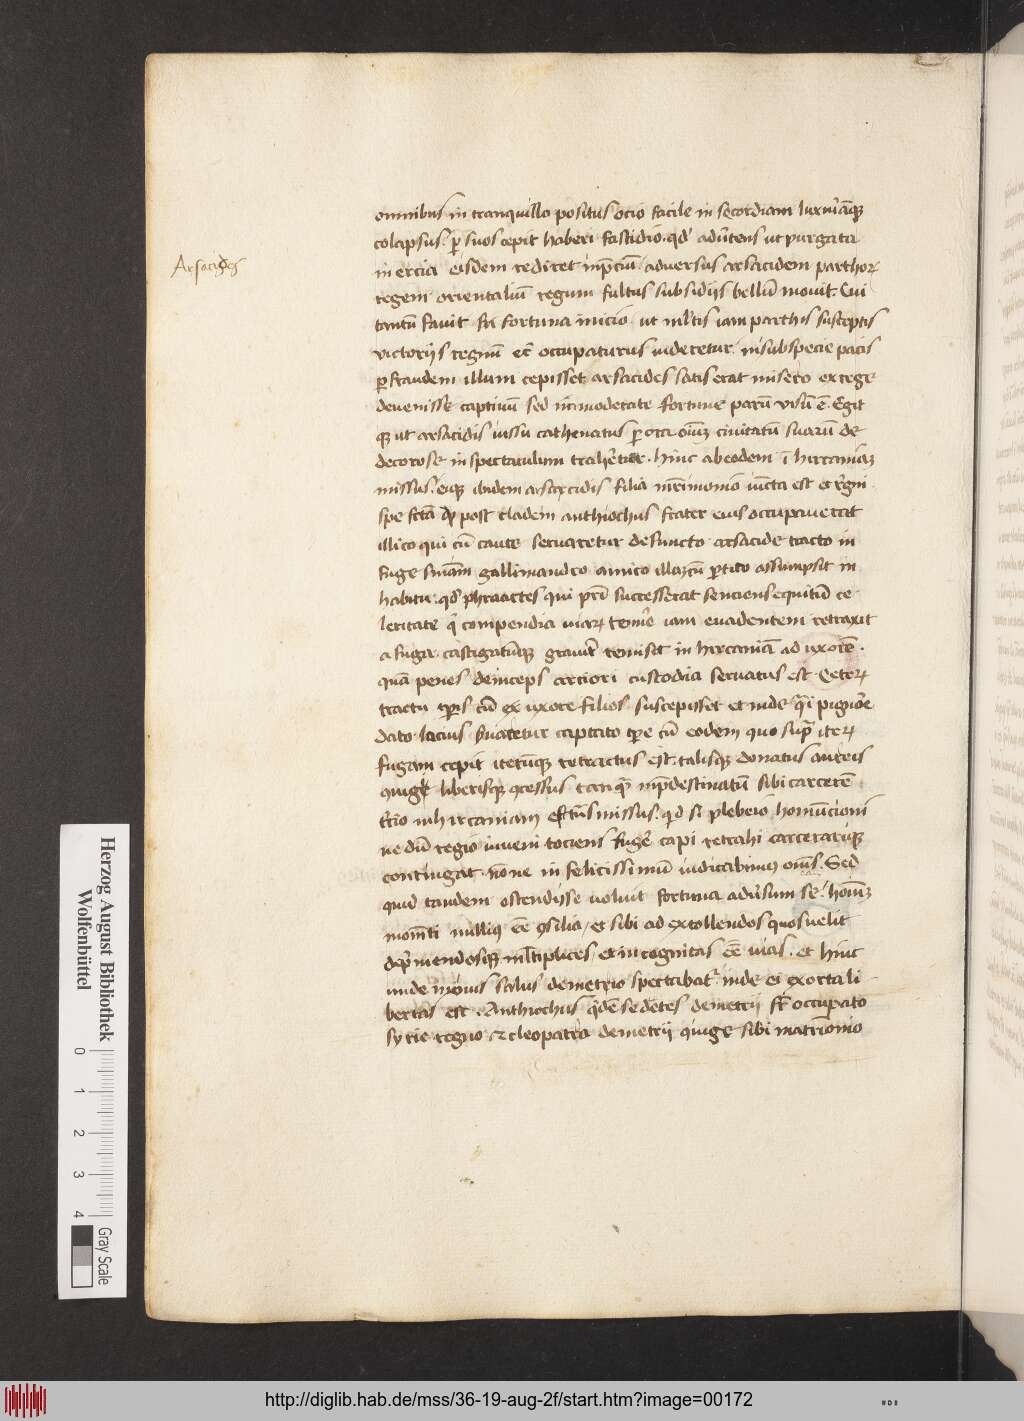 omnibus in tranquillo positus ocio facile in secordiam luxuriāqꝫ
colapsus. ꝑ suos cepit haberi fastidio. qd' adūtens ut purgata
Arsacides
inercia eisdem rediret imp̄ciū adversus arsacidem parthoꝝ
regem orientaliū regum fultus subsidijs bellū movit. Cui
tantū favit fortuna inicio ut ml'tis iam parthis susceptis
victorijs regnū occupaturus videretur. in sub specie pacis
ꝑ fraudem illum cepisset arsacides satis erat misero ex rege
devenisse captivū sed īmoderate fortune parū visū ē. Egit
qꝫ ut arsacidis iussu cathenatus ꝑ ora oīuꝫ civitatū suarū de
decorose in spectaculum traheretur. hinc ab eodem ī hircaniaꝫ
missus. eiqꝫ ibidem arsaccidis filia mr̄imonio iūcta est et regni
spe post cladem anthiochus frater eius occupaverat
illico qui cū caute servaretur defuncto arsacide tracto in
fuge suam gallimandro amico illaꝫ cū ꝑtito assumpsit in
habitu. qd' phraartes qui pr̄i successerat senciens equitū ce
leritate ꝑ compendia viaꝝ tenuē iam evadentem retraxit
a fuga. castigatūqꝫ graviter remisit in hircaniā ad uxorē.
quā penes deinceps arciori custodia servatus est. Ceteꝝ
tractu tꝑis cū ex uxore filios suscepisset et inde q̄i pignore
dato lacius servaretur captato tꝑe cū eodem quo supra iteꝝ
fugam cepit iterūqꝫ retractus est. talisqꝫ donatus aureis
9iuge liberisqꝫ 9cessus tanq̄ī imp̄destinatū sibi carcerē
t'cio in hircaniam est missus. qd si plebeio homūcioni
ne dū regio iuveni tociens fugē capi retrahi carcerariqꝫ
contingat. nōne infelicissimū iudicabimus oms. Sed
quid tandem ostendisse voluit fortuna adūsum se. hoīuꝫ
momēti nullius eē 9silia / et sibi ad extollendos quos velit
dep̄mendosqꝫ ml'tiplices et incognitas eē vias. et hinc
unde minus salus demetrio spectabat'. inde ei exorta li
bertas est. Anthiochus q̄dē sedētes demetrij fr̄ occupato
syrie regno et cleopatra demetrij 9iuge sibi matrīmonio
Herzog August Bibliothek
Wolfenbüttel
0 1 2 3 4
Gray Scale
http://diglib.hab.de/mss/36-19-aug-2f/start.htm?image=00172